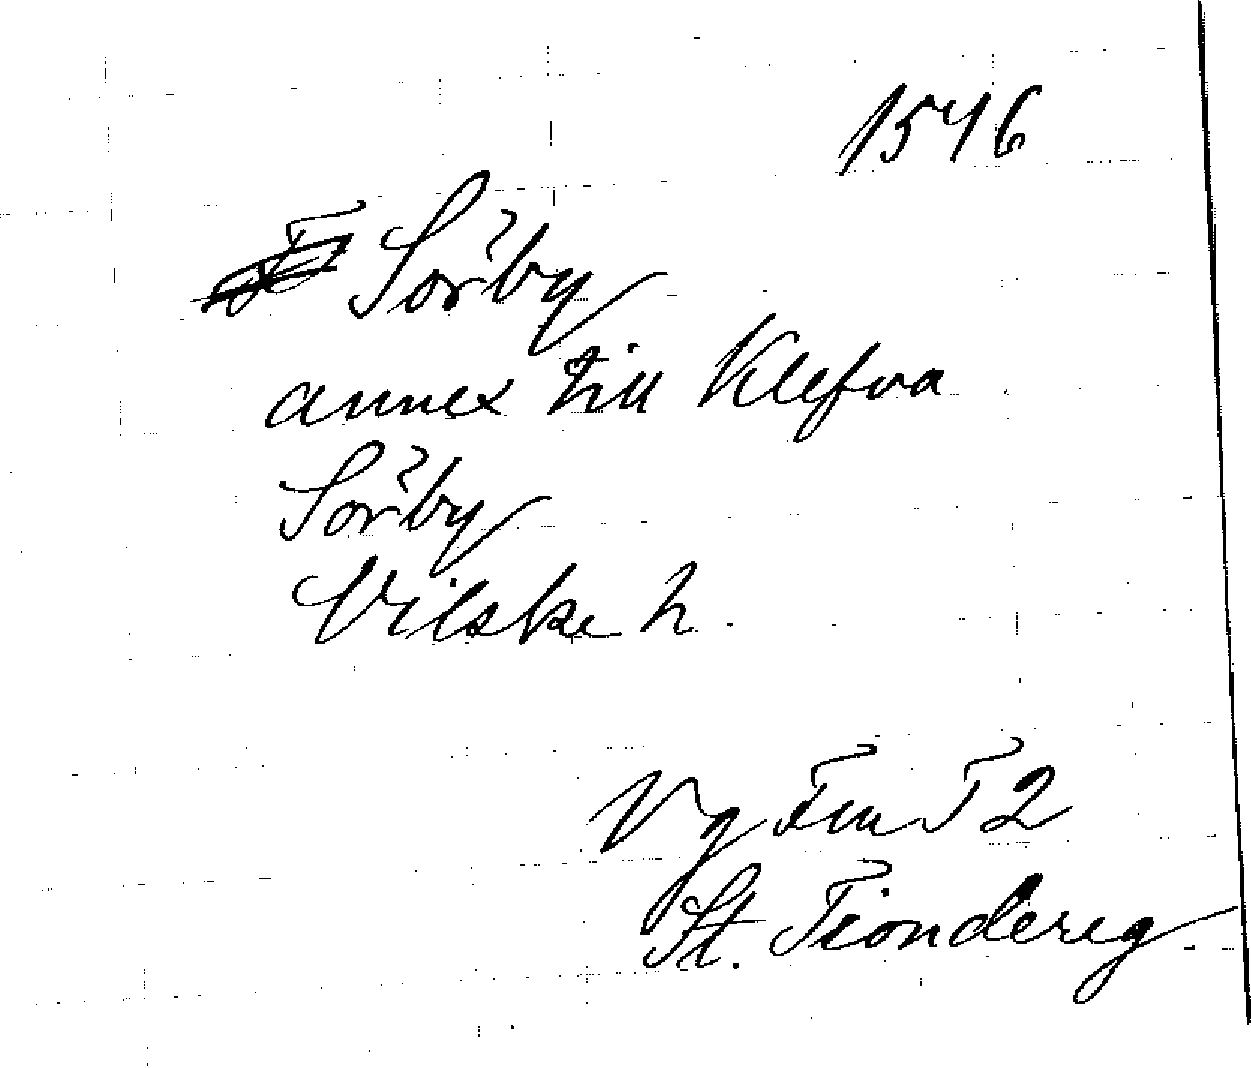 1546
Sörby
annex till Klefva
Sörby
Vilske h.
Vg Fm T 2
St. Tiondereg.